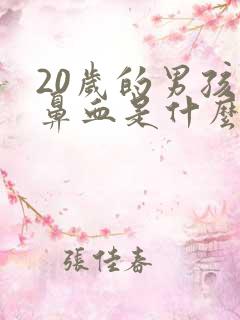 20歲的男孩
鼻血是什麼
張佳春